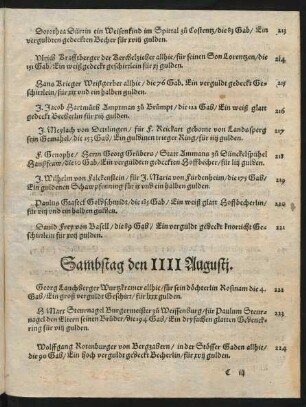 Dorothea Türrin ein Weisenkind im Spittal zů Costentz/die 85 Gab/Ein 213
vergulten gedeckten Becher für xvij gulden.
der Kerßelzieher allhie/für seinen Son Lorentzen/die 214
151 Gab/Ein weißgedeckt geschirrlein für xj gulden.
Hans Krieger Weißgerber allhie/die 76 Gab. Ein vergult gedeckt Ge- 215
schirrlein/für xij vnd ein halben gulden.
J. Jacob Hartmůtt Amptman zů Brümpt/die 122 Gab/Ein weiß glatt 216
gedeckt Becherlin für xij gulden.
J. Meylach von Dettlingen/für F. Reickart geborne von Landasperg 217
sein Gemahel/die 155 Gab/Ein guldinen trieger Ring/für xij gulden.
F. Genophe/Herrn Georg Grůbers/Statt Ammans zů Dünckelspühel 218
Haußfraw/die 10 Gab/Ein vergulten gedeckten Hoffbecher/für lij gulden.
J. Wilhelm von Falckenstein/für J. Maria von Fürdenheim/die 175 Gab/ 219
Ein guldenen Schawpfenning für ix vnd ein halben gulden.
Paulus Graseck Goldschmidt/die 181 Gab/Ein weiß glatt Hoffbecherlin/ 220
für vij vnd ein halben gulden.
David Frey von Basell/die 89 Gab/Ein vergult gedeckt knorricht Ge- 221
schirrlein für xvij gulden.
Sambstag den IIII Augustj.
Georg Landsperger Wurtzkremer allhie/für sein döchterlin Rosinam die 4. 222
Gab/Ein groß vergult Geschirr/für lxx gulden.
H Marx Steinnagel Burgermeister zů Weissenburg/für Paulum Stein- 223
nagel den Eltern seinen Brůder/die 194 Gab/Ein dryfachen glatten Gedenck-
ring für xij gulden.
Wolffgang Rotenburger von Bergzabern/in der Stösser Gaden allhie/ 224
die 90 Gab/Ein hoch vergult gedeckt Becherlin/für xvij gulden.
C iij